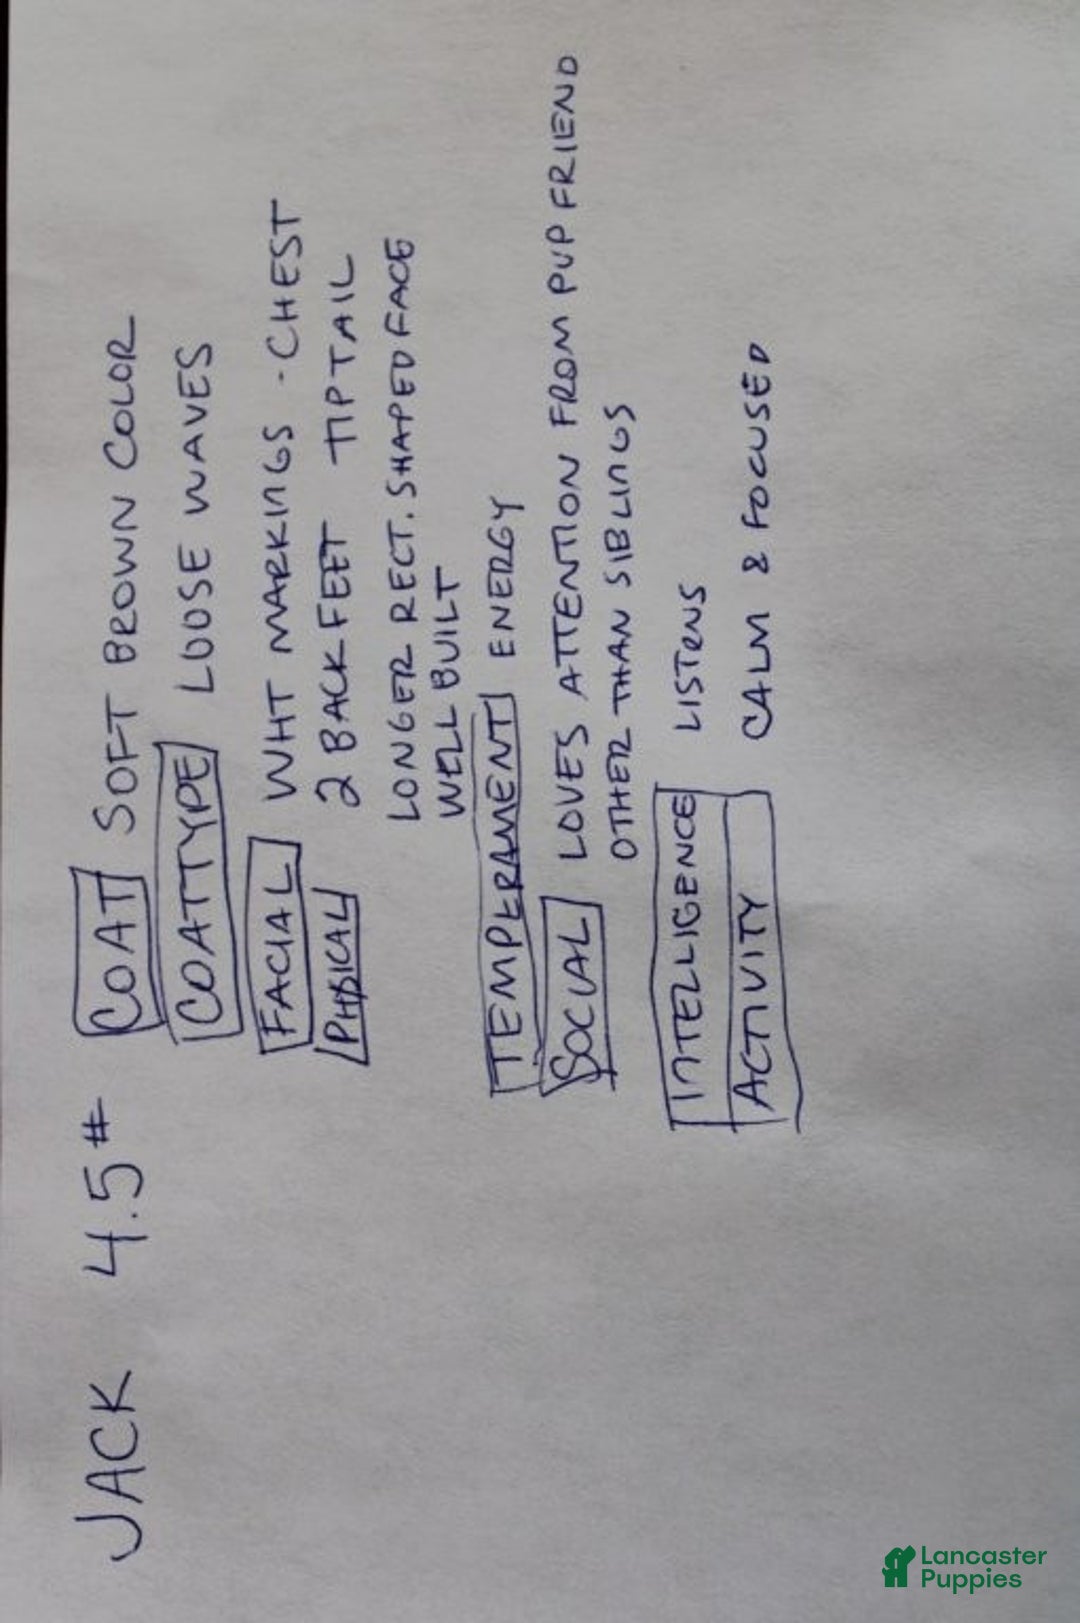 JACK 4.5# COAT SOFT BROWN COLOR
COATTYPE LOOSE WAVES
FACIAL WHT MARKINGS - CHEST
PHYSICAL 2 BACK FEET TIPTAIL
LONGER RECT. SHAPED FACE
WELL BUILT
TEMPERAMENT ENERGY
SOCIAL LOVES ATTENTION FROM PUP FRIEND
OTHER THAN SIBLINGS
INTELLIGENCE LISTENS
ACTIVITY CALM & FOCUSED
Lancaster
Puppies